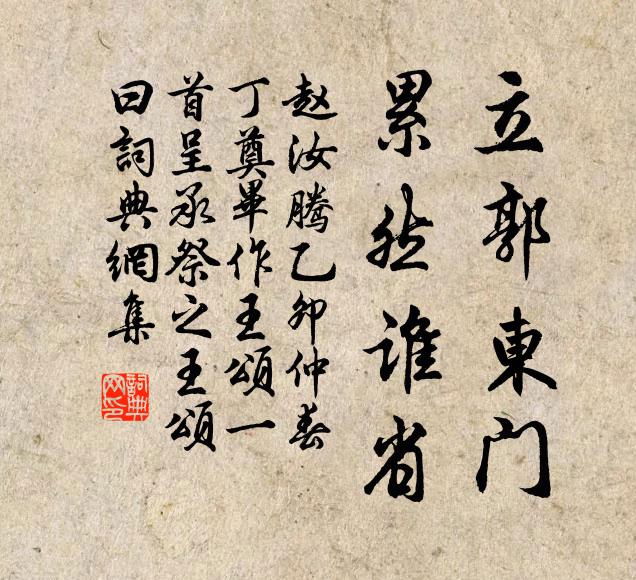 立郭東門
累然誰省
赵汝騰乙卯仲春
丁奠畢作王頌一
首呈承祭之王頌
曰詞典網集
詞典
网印